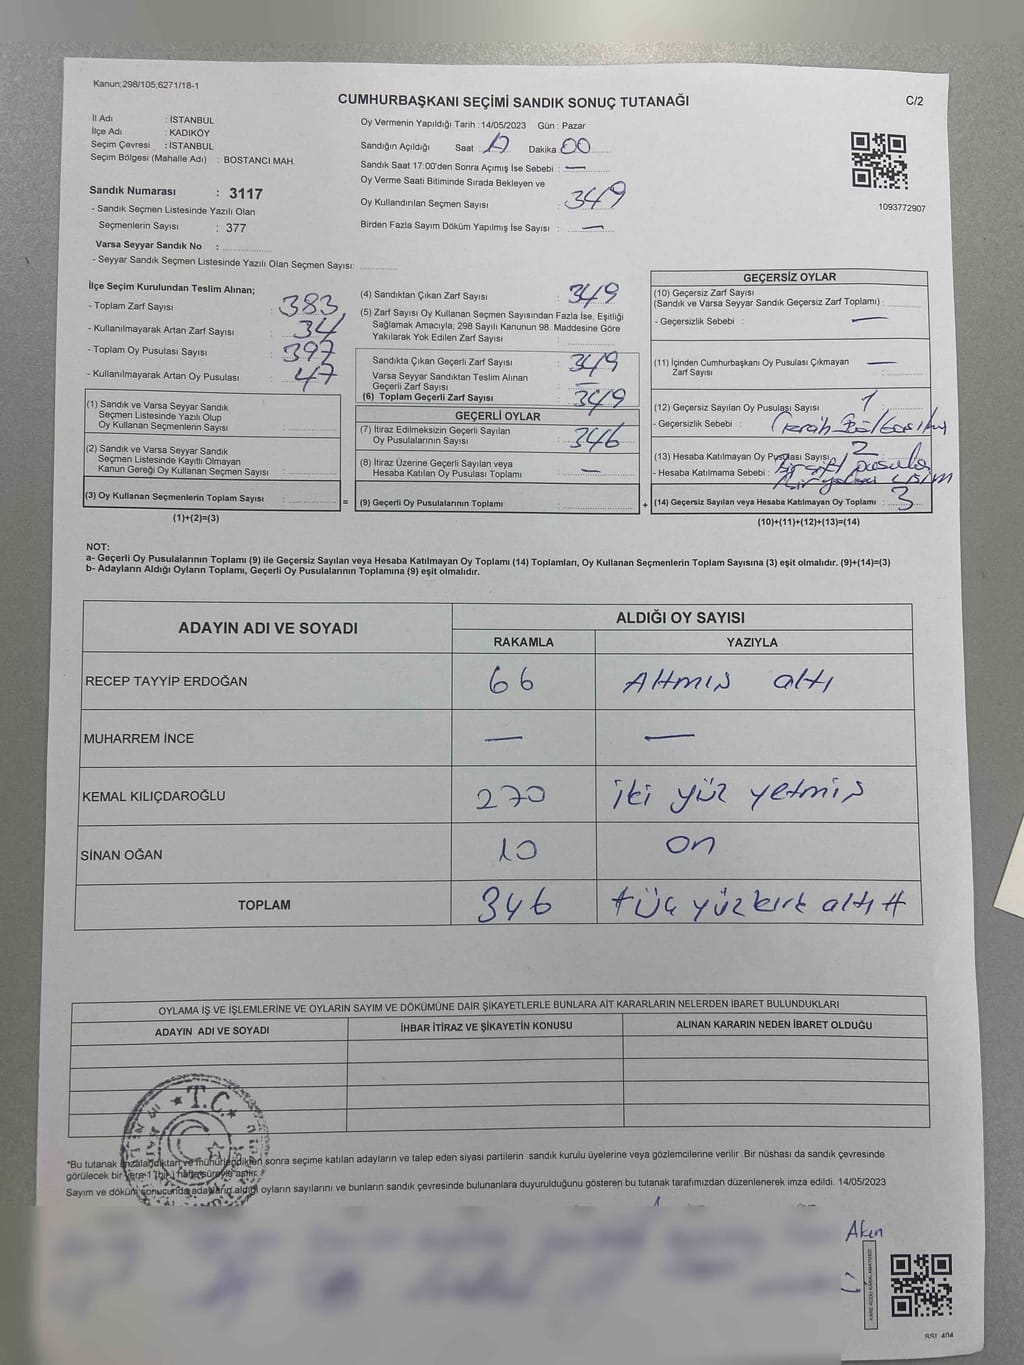 Kanun;298/105;6271/18-1
CUMHURBAŞKANI SEÇİMİ SANDIK SONUÇ TUTANAĞI
C/2
İl Adı : İSTANBUL
İlçe Adı : KADIKÖY
Seçim Çevresi : İSTANBUL
Seçim Bölgesi (Mahalle Adı) : BOSTANCI MAH.
Sandık Numarası : 3117
- Sandık Seçmen Listesinde Yazılı Olan
Seçmenlerin Sayısı : 377
Varsa Seyyar Sandık No :
- Seyyar Sandık Seçmen Listesinde Yazılı Olan Seçmen Sayısı:
Oy Vermenin Yapıldığı Tarih : 14/05/2023 Gün : Pazar
Sandığın Açıldığı Saat : 17 Dakika 00
Sandık Saat 17:00'den Sonra Açımış İse Sebebi : —
Oy Verme Saati Bitiminde Sırada Bekleyen ve
Oy Kullandırılan Seçmen Sayısı : 349
Birden Fazla Sayım Döküm Yapılmış İse Sayısı : —
1093772907
İlçe Seçim Kurulundan Teslim Alınan;
- Toplam Zarf Sayısı : 383
- Kullanılmayarak Artan Zarf Sayısı : 34
- Toplam Oy Pusulası Sayısı : 397
- Kullanılmayarak Artan Oy Pusulası : 47
(1) Sandık ve Varsa Seyyar Sandık
Seçmen Listesinde Yazılı Olup
Oy Kullanan Seçmenlerin Sayısı :
(2) Sandık ve Varsa Seyyar Sandık
Seçmen Listesinde Kayıtlı Olmayan
Kanun Gereği Oy Kullanan Seçmen Sayısı :
(3) Oy Kullanan Seçmenlerin Toplam Sayısı : =
(1)+(2)=(3)
(4) Sandıktan Çıkan Zarf Sayısı : 349
(5) Zarf Sayısı Oy Kullanan Seçmen Sayısından Fazla İse, Eşitliği
Sağlamak Amacıyla; 298 Sayılı Kanunun 98. Maddesine Göre
Yakılarak Yok Edilen Zarf Sayısı :
Sandıkta Çıkan Geçerli Zarf Sayısı : 349
Varsa Seyyar Sandıktan Teslim Alınan
Geçerli Zarf Sayısı : —
(6) Toplam Geçerli Zarf Sayısı : 349
GEÇERLİ OYLAR
(7) İtiraz Edilmeksizin Geçerli Sayılan
Oy Pusulalarının Sayısı : 346
(8) İtiraz Üzerine Geçerli Sayılan veya
Hesaba Katılan Oy Pusulası Toplamı : —
(9) Geçerli Oy Pusulalarının Toplamı : +
GEÇERSİZ OYLAR
(10) Geçersiz Zarf Sayısı
(Sandık ve Varsa Seyyar Sandık Geçersiz Zarf Toplamı) :
- Geçersizlik Sebebi : —
(11) İçinden Cumhurbaşkanı Oy Pusulası Çıkmayan —
Zarf Sayısı :
(12) Geçersiz Sayılan Oy Pusulası Sayısı : 1
- Geçersizlik Sebebi :
(13) Hesaba Katılmayan Oy Pusulası Sayısı : 2
- Hesaba Katılmama Sebebi :
(14) Geçersiz Sayılan veya Hesaba Katılmayan Oy Toplamı : 3
(10)+(11)+(12)+(13)=(14)
NOT:
a- Geçerli Oy Pusulalarının Toplamı (9) ile Geçersiz Sayılan veya Hesaba Katılmayan Oy Toplamı (14) Toplamları, Oy Kullanan Seçmenlerin Toplam Sayısına (3) eşit olmalıdır. (9)+(14)=(3)
b- Adayların Aldığı Oyların Toplamı, Geçerli Oy Pusulalarının Toplamına (9) eşit olmalıdır.
ADAYIN ADI VE SOYADI
ALDIĞI OY SAYISI
RAKAMLA YAZIYLA
RECEP TAYYİP ERDOĞAN 66 Altmış altı
MUHARREM İNCE — —
KEMAL KILIÇDAROĞLU 270 iki yüz yetmiş
SİNAN OĞAN 10 on
TOPLAM 346 #üç yüz kırk altı#
OYLAMA İŞ VE İŞLEMLERİNE VE OYLARIN SAYIM VE DÖKÜMÜNE DAİR ŞİKAYETLERLE BUNLARA AİT KARARLARIN NELERDEN İBARET BULUNDUKLARI
ADAYIN ADI VE SOYADI İHBAR İTİRAZ VE ŞİKAYETİN KONUSU ALINAN KARARIN NEDEN İBARET OLDUĞU
T.C.
*Bu tutanak imzalandıktan ve mühürlendikten sonra seçime katılan adayların ve talep eden siyasi partilerin sandık kurulu üyelerine veya gözlemcilerine verilir. Bir nüshası da sandık çevresinde
görülecek bir yere 1 (bir) hafta süreyle asılır.
Sayım ve döküm sonucunda adayların aldığı oyların sayılarını ve bunların sandık çevresinde bulunanlara duyurulduğunu gösteren bu tutanak tarafımızdan düzenlenerek imza edildi. 14/05/2023
Aken